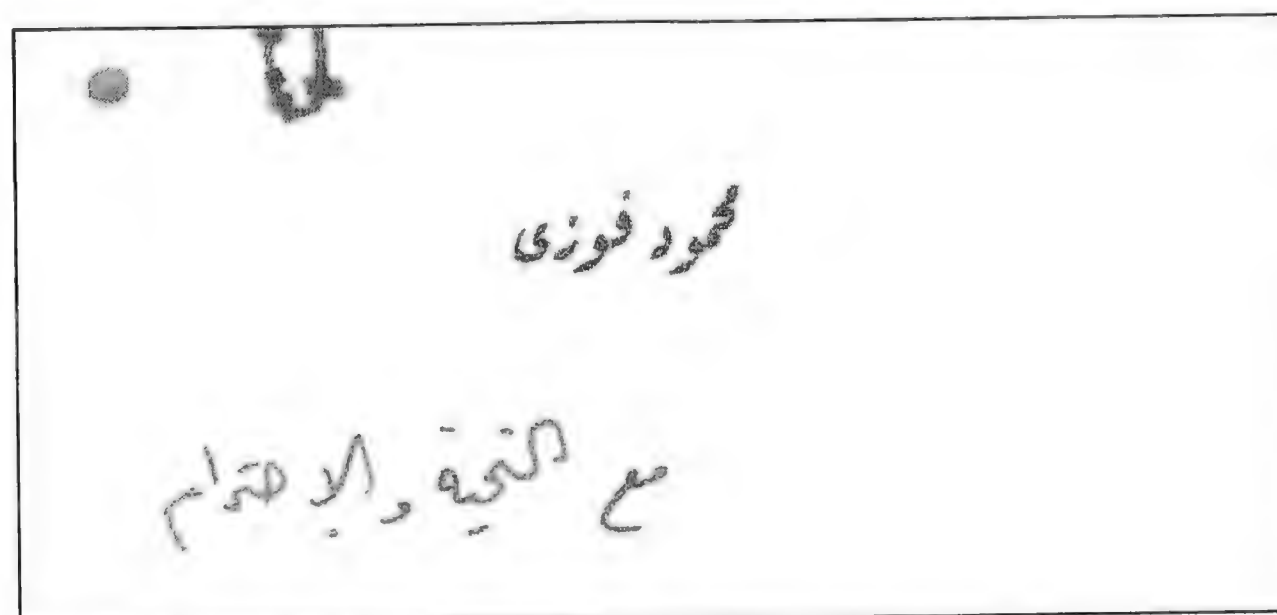 محمود فوزى
مع التحية والإحترام